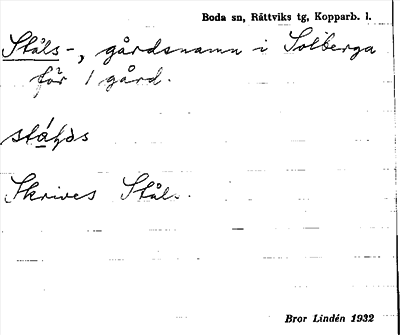 Boda sn, Rättviks tg, Kopparb. l.
Ståls-, gårdsnamn i Solberga
för 1 gård.
Skrives Stål.
Bror Lindén 1932